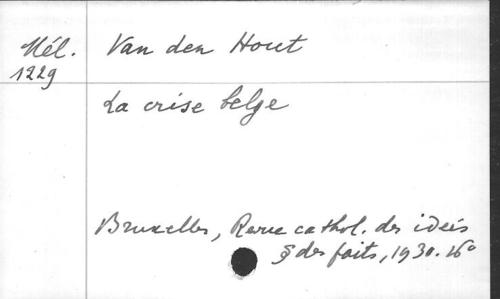 Mél. Van den Hout
1229
La crise belge
Bruxelles, Revue cathol. des idées
& des faits, 1930. 16°